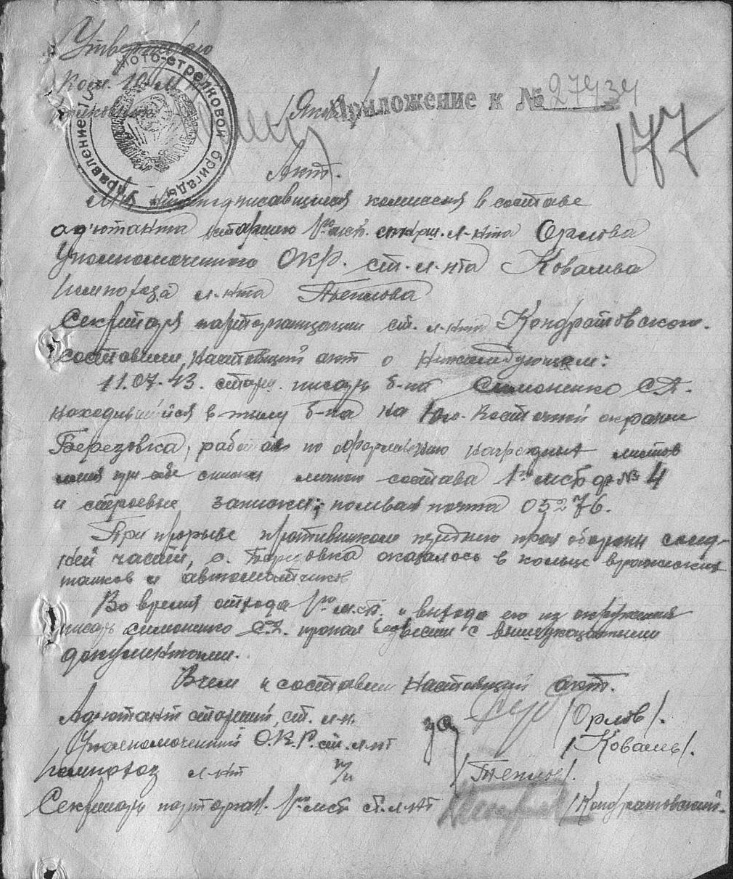 Утверждаю
Ком. 10 М
Управление 10 мото-стрелковой бригады
Приложение к № 27434
177
Акт.
Мы нижеподписавшиеся комиссия в составе
адютанта старшего 1го мсб. ст. л-нта Орлова
Уполномоченного ОКР. ст. л-нта Коваль
л-нта Теплова
Секретаря парторганизации ст. л-нта Кондратовского.
составили настоящий акт о нижеследующем:
11.07.43. старш. писарь б-на Симоненко С.А.
находившийся в тылу б-на на Юго-Восточной окраине
Березовка, работая по оформлению наградных листов
имея при себе списки личного состава 1го мсб ф №4
и строевые записки; полевая почта 05276.
При прорыве противником переднего края обороны сосед-
ней части, д. Березовка оказалось в кольце вражеских
танков и автоматчиков
Во время отхода 1го мсб. и выхода его из окружения
писарь Симоненко С.А. пропал безвести с вышеуказанными
документами.
В чем и составлен настоящий акт.
Адютант старший, ст. л-н. за /Орлов/.
Уполномоченный О.К.Р. ст. л-нт /Коваль/.
л-нт п/п /Теплов/.
Секретарь парторган. 1го мсб ст. л-нт /Кондратовский.